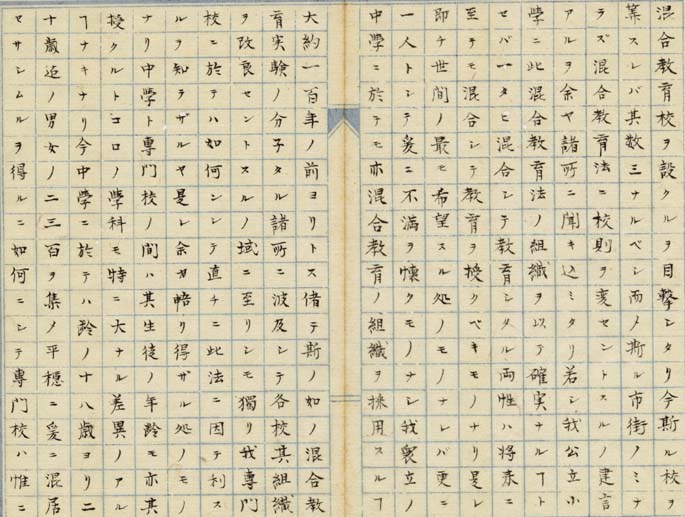 混合教育校ヲ設クルヲ目撃シタリ今斯ル校ヲ
筭スレバ其数三ナルベシ而メ斯ル市街ノミナ
ラズ混合教育法ニ校則ヲ変セントスルノ建言
アルヲ余ヤ諸所ニ聞キ込ミタリ若シ我公立小
學ニ此混合教育法ノ組織ヲ以テ確実ナルヿト
セバ一タヒ混合シテ教育シタル両性ハ将来ニ
至テモ混合シテ教育ヲ授クベキモノナリ是レ
即チ世間ノ最モ希望スル処ノモノナレバ更ニ
一人トシテ爰ニ不満ヲ懐クモノナシ我裏立ノ
中學ニ於テモ亦混合教育ノ組織ヲ採用スルヿ
大約一百年ノ前ヨリトス偖テ斯ノ如ノ混合教
育実験ノ分子タル諸所ニ波及シテ各校其組織
ヲ改良セントスルノ域ニ至リシモ獨リ我専門
校ニ於テハ如何シテ直チニ此法ニ因テ利ス
ルヲ知ラザルヤ是レ余ガ暁リ得ザル処ノモノ
ナリ中學ト専門校ノ間ハ其生徒ノ年齢モ亦其
授クルトコロノ學科モ特ニ大ナル差異ノアル
ヿナキナリ今中學ニ於テハ齢ノ十八歳ヨリ二
十歳迠ノ男女ノ二三百ヲ集メ平穏ニ爰ニ混居
セサシムルヲ得ルニ如何ニシテ専門校ハ惟ニ